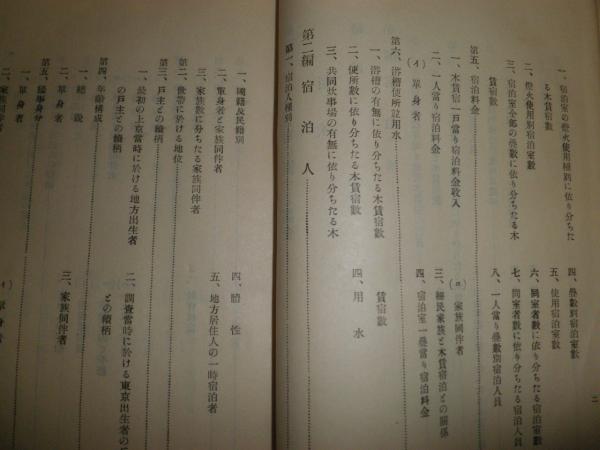 一、宿泊室の燈火使用種別に依り分ちた
る木賃宿數
二、燈火使用別宿泊室數
三、宿泊室全部の疊數に依り分ちたる木
賃宿數
四、疊數別宿泊室數
五、使用宿泊室數
六、同室者數に依り分ちたる宿泊室數
七、同室者數に依り分ちたる宿泊人員
八、一人當り疊數別宿泊人員
第五、宿泊料金
一、木賃宿一戸當り宿泊料金收入
二、一人當り宿泊料金
(イ)單身者
(ロ)家族同伴者
三、細民家族と木賃宿泊との關係
四、宿泊室一疊當り宿泊料金
第六、浴槽便所竝用水
一、浴槽の有無に依り分ちたる木賃宿數
二、便所數に依り分ちたる木賃宿數
三、共同炊事場の有無に依り分ちたる木
賃宿數
四、用水
第二編 宿泊人
第一、宿泊人種別
一、國籍及民籍別
二、單身者と家族同伴者
三、家族數に分ちたる家族同伴者
四、體性
五、地方居住人の一時宿泊者
第二、世帶に於ける地位
第三、戸主との續柄
一、最初の上京當時に於ける地方出生者
の戸主との續柄
二、調査當時に於ける東京出生者の
との續柄
第四、年齡構成
一、總説
二、單身者
三、家族同伴者
第五、緣事身分
一、單身者
二、家族同伴者
イ、單身者
二